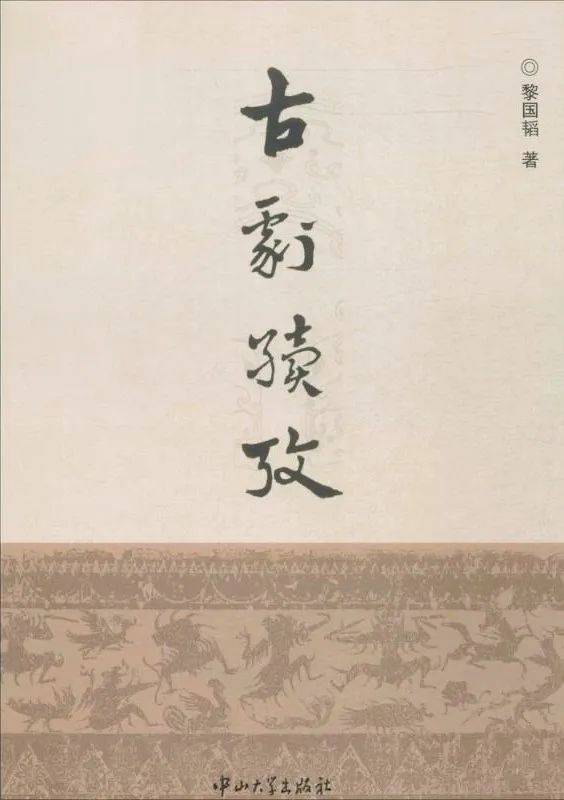 ◎ 黎国韬 著
古劇續攷
中山大学出版社